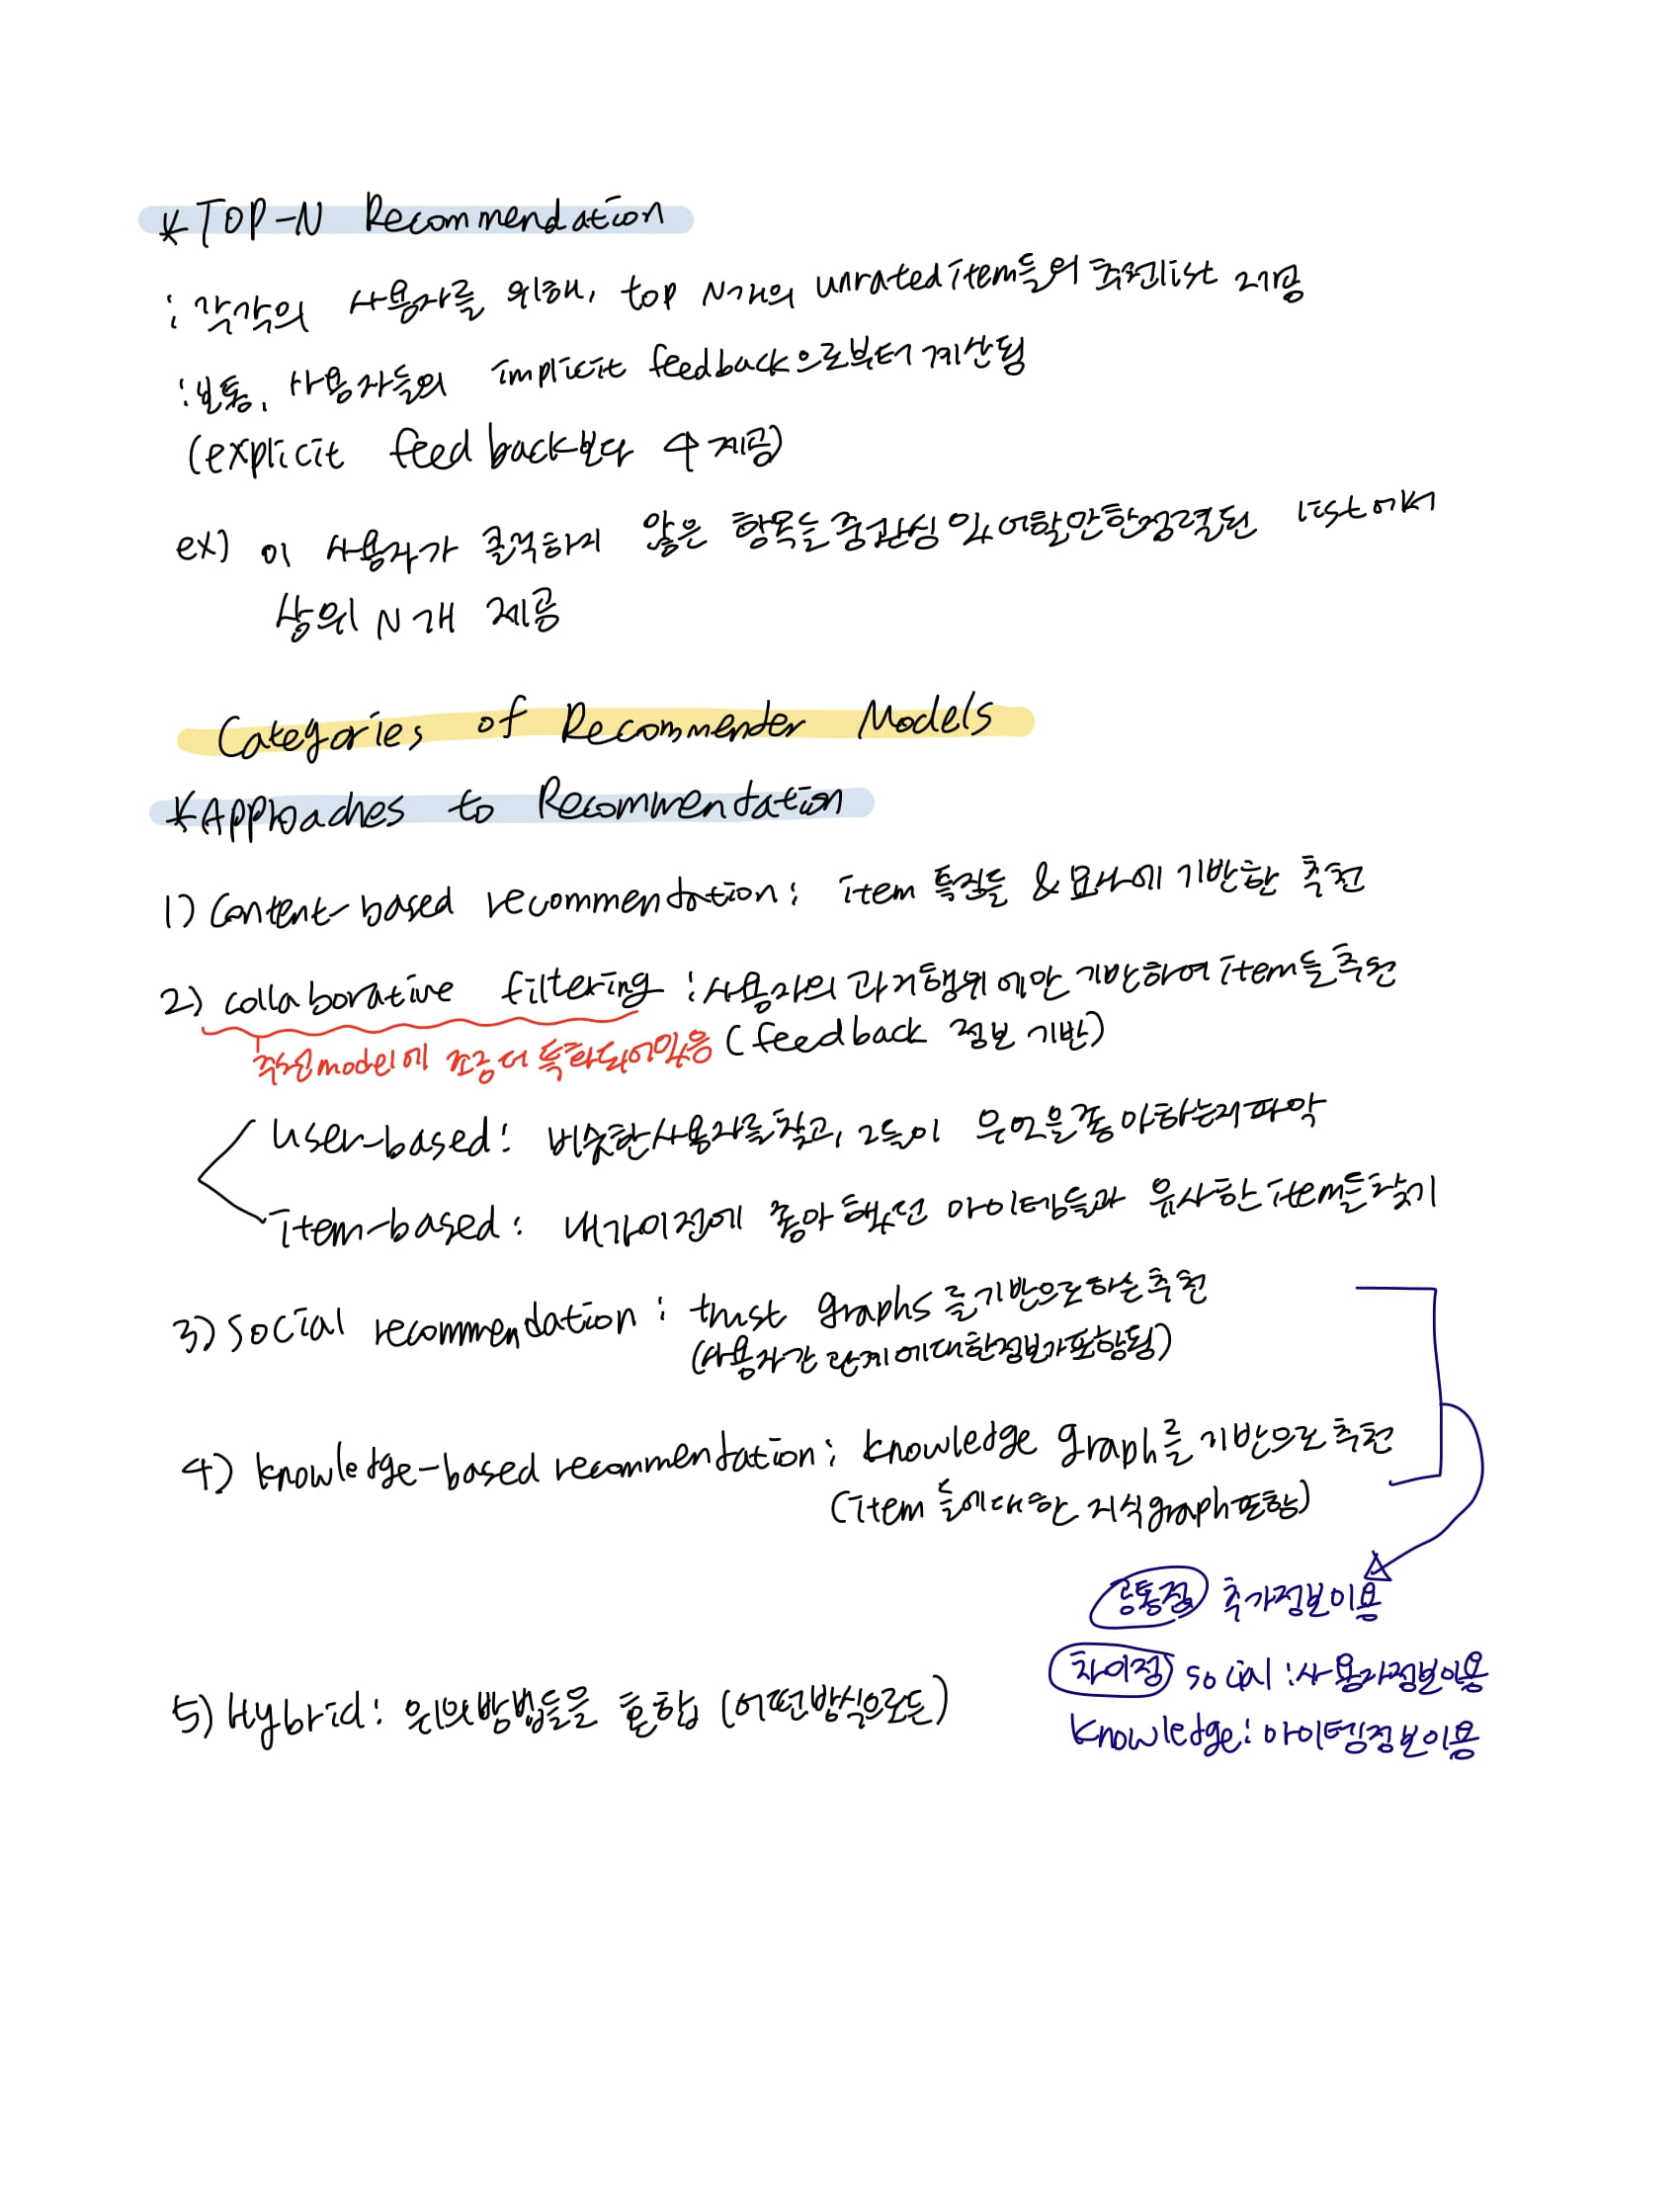 *TOP-N Recommendation
: 각각의 사용자를 위해, top N개의 unrated item들의 추천list 제공
: 보통, 사용자들의 implicit feedback으로부터 계산됨
(explicit feedback보다 수 제공)
ex) 이 사용자가 클릭하지 않은 항목들 중 관심 있어할만한 정렬된 list에서
상위 N개 제공
Categories of Recommender Models
*Approaches to Recommendation
1) Content-based recommendation: item 특징들 & 묘사에 기반한 추천
2) collaborative filtering : 사용자의 과거행위에만 기반하여 item들 추천
추천model에 조금 더 특화되어있음 (feedback 정보 기반)
User-based: 비슷한 사용자를 찾고, 그들이 무엇을 좋아하는지 파악
Item-based: 내가 이전에 좋아했던 아이템들과 유사한 item들 찾기
3) Social recommendation: trust graphs를 기반으로하는 추천
(사용자간 관계에 대한 정보가 포함됨)
4) knowledge-based recommendation: knowledge graph를 기반으로 추천
(item들에 대한 지식graph포함)
공통점 추가정보이용
차이점 social : 사용자정보이용
knowledge: 아이템정보이용
5) Hybrid: 위의 방법들을 혼합 (어떤방식으로든)